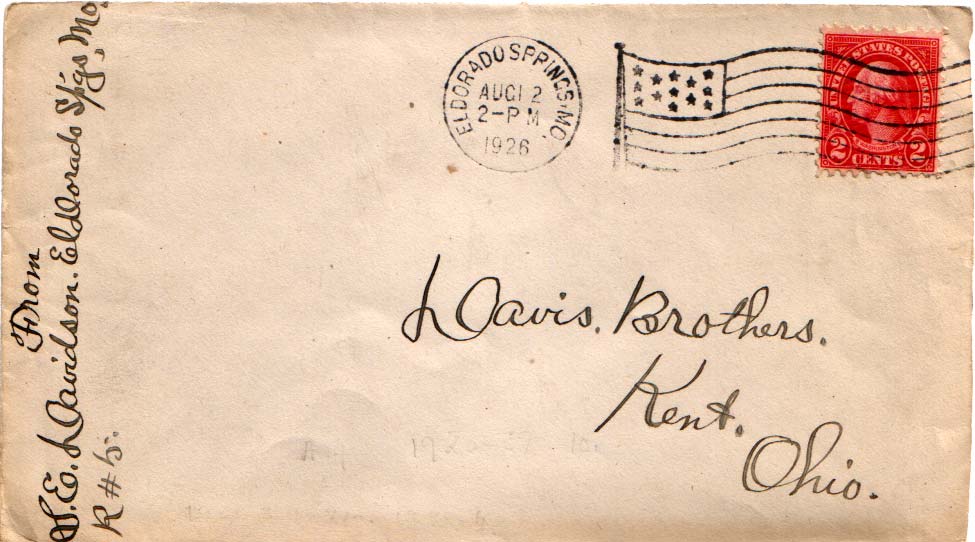 From
S. E. Davidson. ElDorado Spgs, Mo.
R#5.
ELDORADO SPRINGS, MO.
AUG 12
2-PM
1926
UNITED STATES POSTAGE
2 CENTS 2
Davis. Brothers.
Kent.
Ohio.